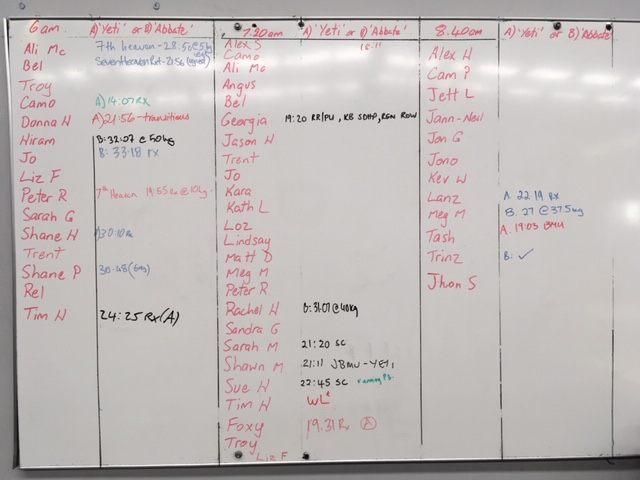 6am A) 'Yeti' or B) 'Abbate'
Ali Mc 7th heaven - 28:50@5kg
Bel Seven Heaven Rx - 21:56
Troy
Camo A) 14:07 RX
Donna W A) 21:56 - transitions
Hiram B: 32:07 @ 50kg
Jo B: 33:18 rx
Liz F
Peter R 7th Heaven 19:55 Rx @ 10kg
Sarah G
Shane W 30:10 Rx
Trent
Shane P 30:48
Rel
Tim W 24:25 Rx (A)
7.20am A) 'Yeti' or B) 'Abbate'
Alex S
Camo
Ali Mc
Angus
Bel
Georgia 19:20 RR/PU, KB SDHP, RUN ROW
Jason W
Trent
Jo
Kara
Kath L
Loz
Lindsay
Matt D
Meg M
Peter R
Rachel W B: 31:07 @ 40kg
Sandra G
Sarah M 21:20 SC
Shawn M 21:11 JBMU - YETI
Sue W 22:45 SC
Tim W WL
Foxy 19.31 Rx A
Troy
Liz F
8.40am A) 'Yeti' or B) 'Abbate'
Alex W
Cam P
Jett L
Jann-Neil
Jon G
Jono
Kev W
Lanz A. 22.19 Rx
Meg M B. 27 @ 37.5kg
Tash A. 19:03 BMU
Trinz B: ✓
Jhon S